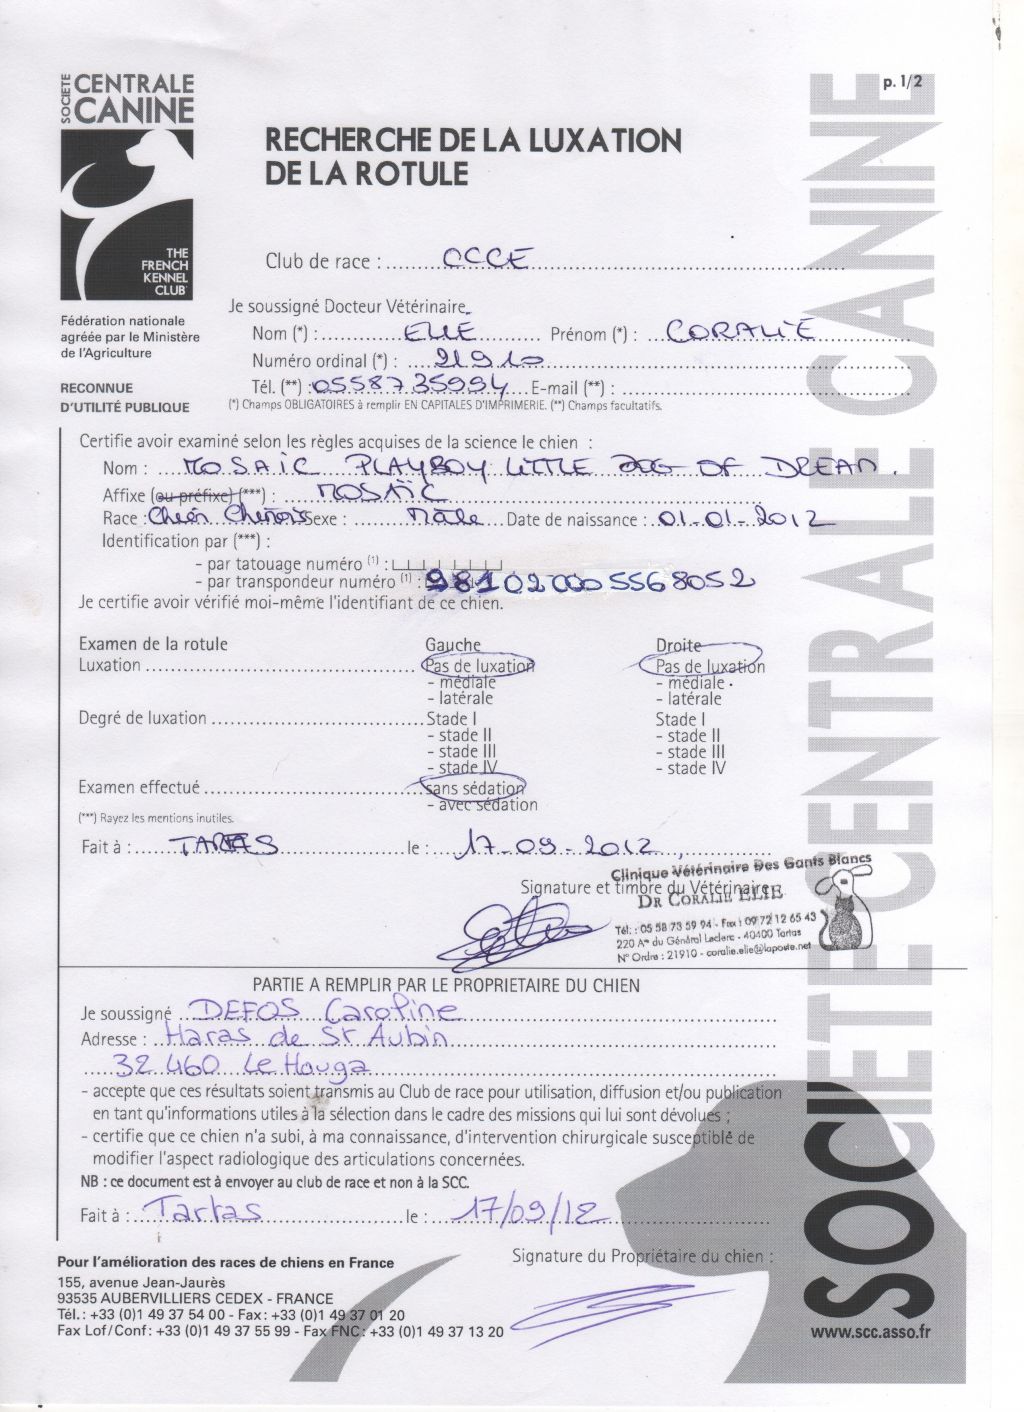 p. 1/2
SOCIETE CENTRALE CANINE
RECHERCHE DE LA LUXATION
DE LA ROTULE
THE
FRENCH
KENNEL
CLUB
Fédération nationale
agréée par le Ministère
de l'Agriculture
RECONNUE
D'UTILITÉ PUBLIQUE
Club de race : CCCE
Je soussigné Docteur Vétérinaire
Nom (*) : ELIE Prénom (*) : CORALIE
Numéro ordinal (*) : 21910
Tél. (**) : 0558735994 E-mail (**) :
(*) Champs OBLIGATOIRES à remplir EN CAPITALES D'IMPRIMERIE. (**) Champs facultatifs.
Certifie avoir examiné selon les règles acquises de la science le chien :
Nom : MOSAÏC PLAYBOY LITTLE DOG OF DREAM.
Affixe (ou préfixe) (***) : MOSAÏC
Race : Chien Chinois Sexe : Mâle Date de naissance : 01-01-2012
Identification par (***) :
- par tatouage numéro (1) :
- par transpondeur numéro (1) : 981020005568052
Je certifie avoir vérifié moi-même l'identifiant de ce chien.
Examen de la rotule Gauche Droite
Luxation Pas de luxation Pas de luxation
- médiale - médiale
- latérale - latérale
Degré de luxation Stade I Stade I
- stade II - stade II
- stade III - stade III
- stade IV - stade IV
Examen effectué sans sédation
- avec sédation
(***) Rayez les mentions inutiles.
Fait à : TARTAS le : 17-09-2012
Signature et timbre du Vétérinaire
Clinique Vétérinaire Des Gants Blancs
DR CORALIE ELIE
Tél. : 05 58 73 59 94 - Fax : 09 72 12 65 43
220 Av du Général Leclerc - 40400 Tartas
N° Ordre : 21910 - coralie.elie@laposte.net
PARTIE A REMPLIR PAR LE PROPRIETAIRE DU CHIEN
Je soussigné DEFOS Caroline
Adresse : Haras de St Aubin
32460 Le Houga
- accepte que ces résultats soient transmis au Club de race pour utilisation, diffusion et/ou publication
en tant qu'informations utiles à la sélection dans le cadre des missions qui lui sont dévolues ;
- certifie que ce chien n'a subi, à ma connaissance, d'intervention chirurgicale susceptible de
modifier l'aspect radiologique des articulations concernées.
NB : ce document est à envoyer au club de race et non à la SCC.
Fait à : Tartas le : 17/09/12
Signature du Propriétaire du chien :
Pour l'amélioration des races de chiens en France
155, avenue Jean-Jaurès
93535 AUBERVILLIERS CEDEX - FRANCE
Tél. : +33 (0)1 49 37 54 00 - Fax : +33 (0)1 49 37 01 20
Fax Lof/Conf : +33 (0)1 49 37 55 99 - Fax FNC : +33 (0)1 49 37 13 20
www.scc.asso.fr
SOCIETE CENTRALE CANINE